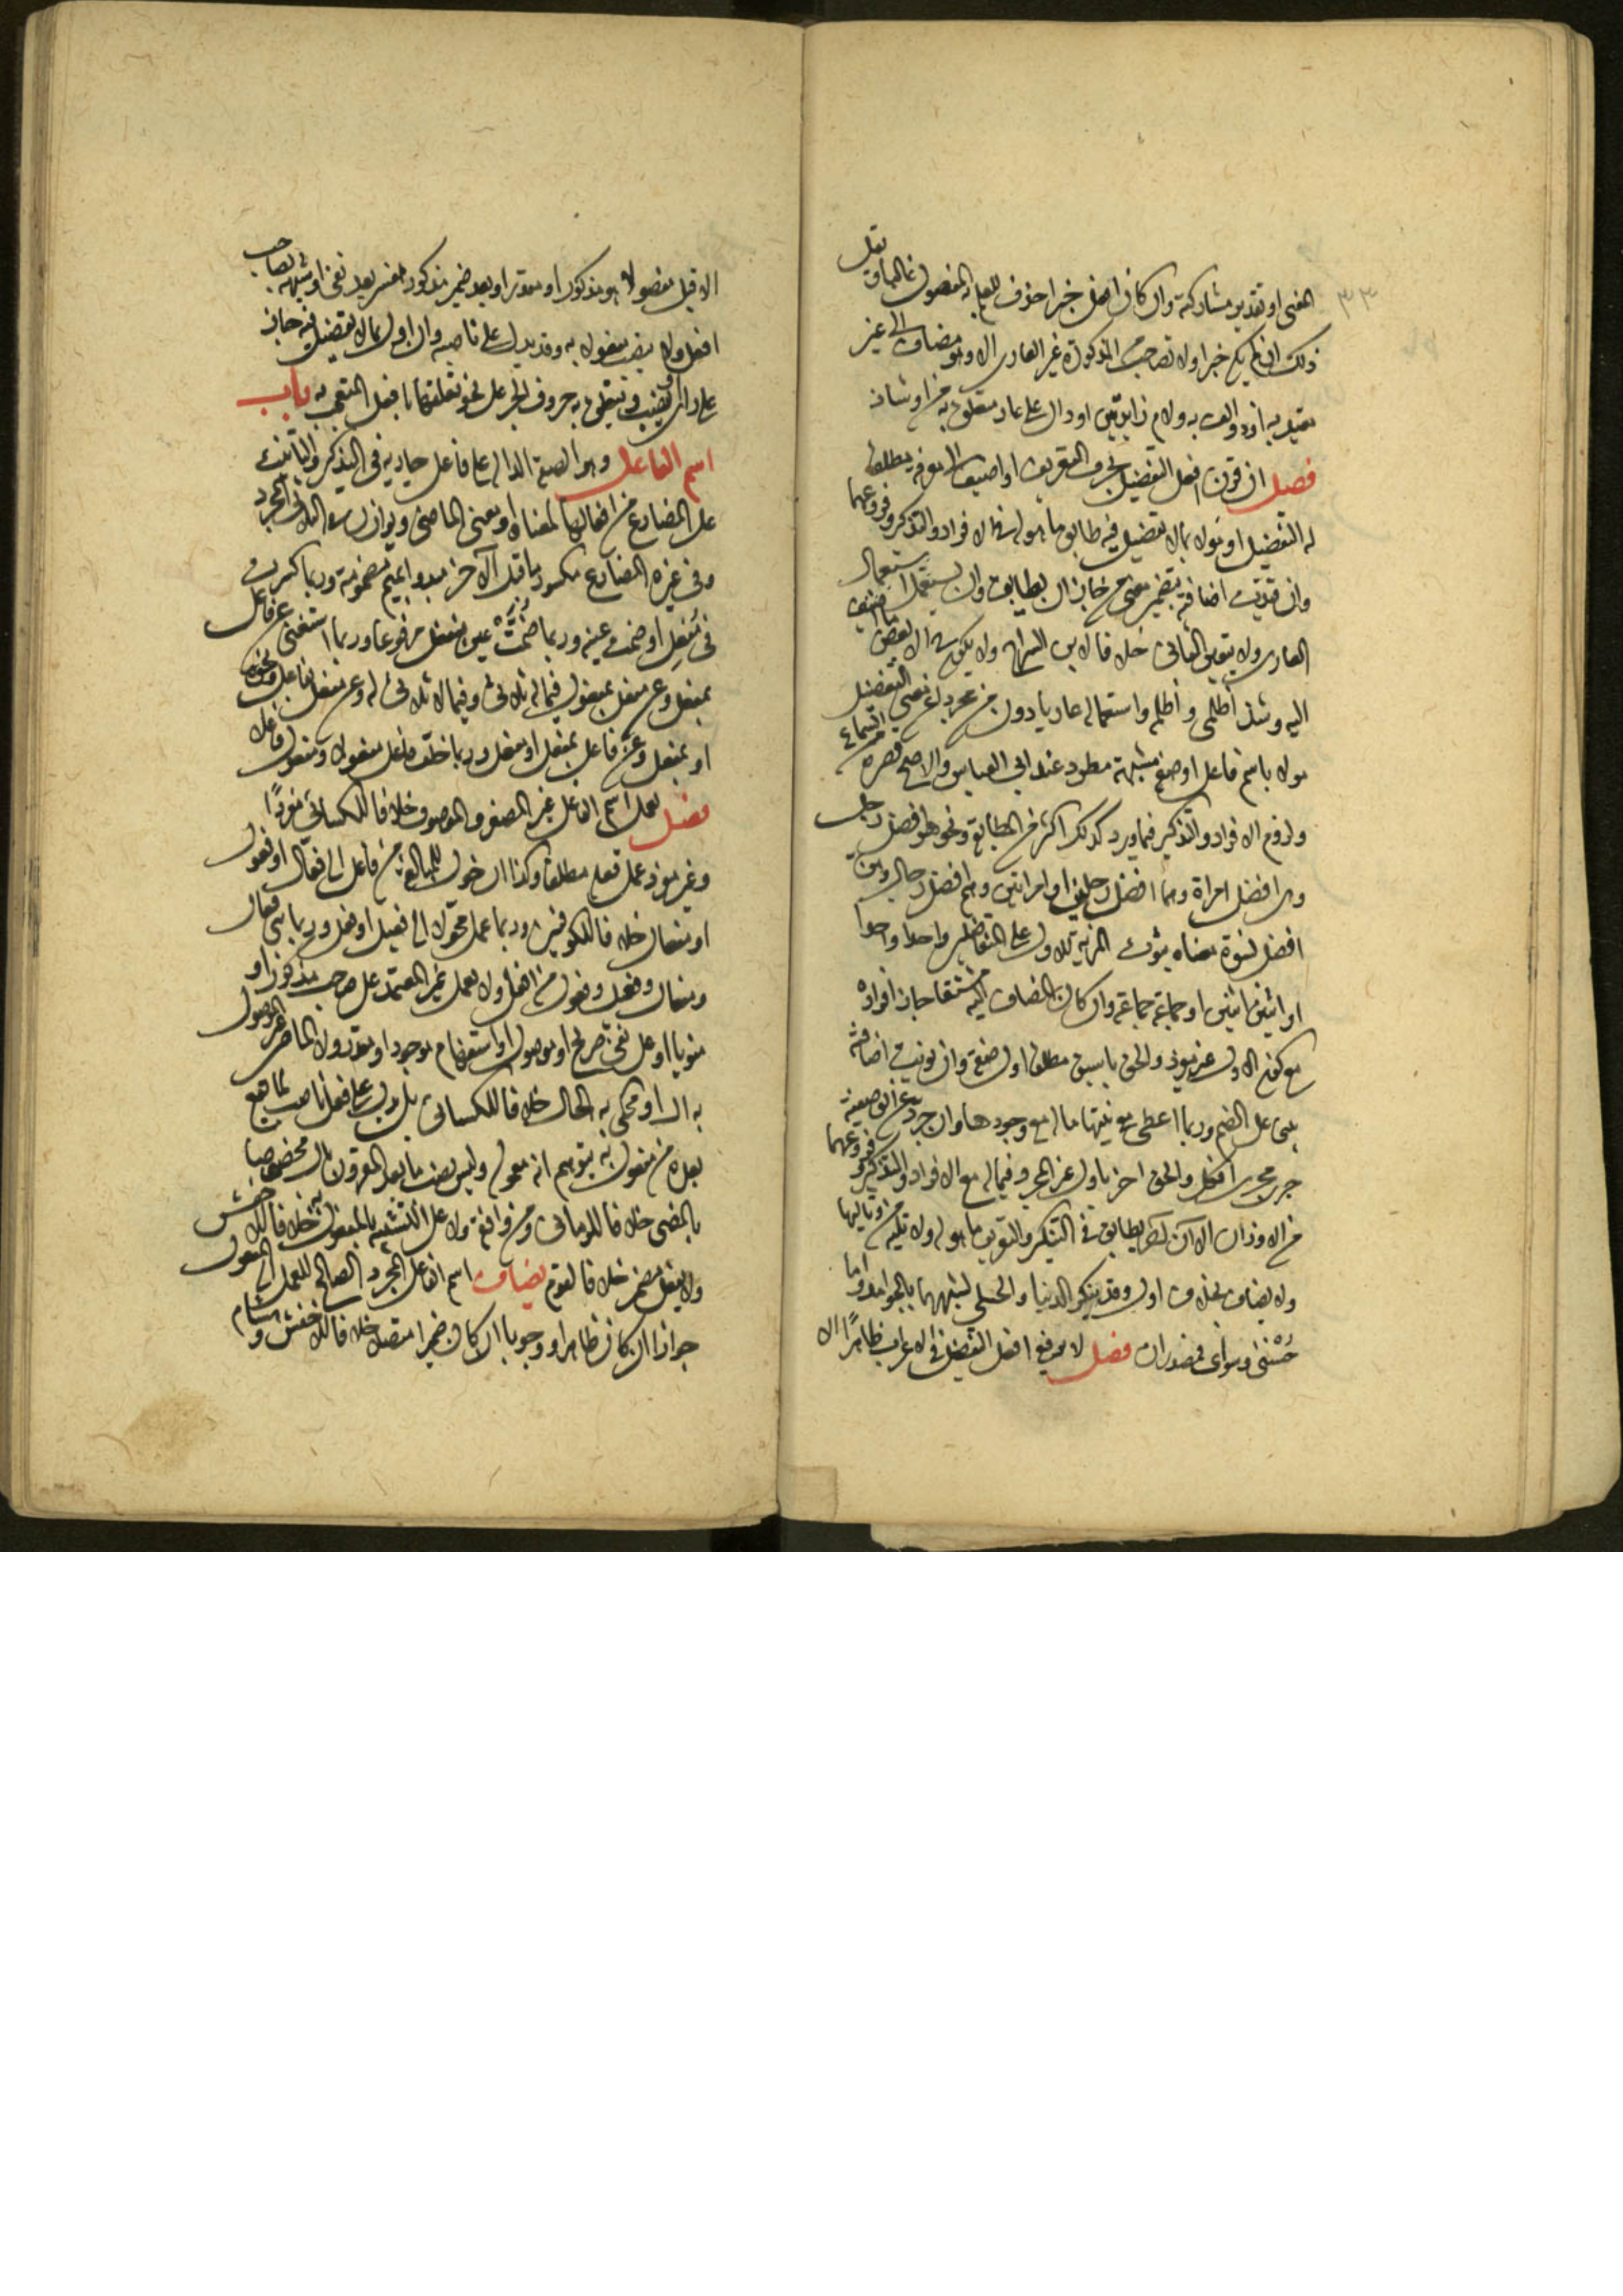 ٣٣
المعنى او تقدير مشاركة وان كان افعل خبرا حذف للعلم به المفضول غالبا ويقل
ذلك ان لم يكن خبرا ولا تصاحب من المذكورة غير العارى الا وهو مضاف الى غير
معتد به او ذو الف ولام زايدتين او دال على عار متعلق به من او شاذ
فصل ان قرن افعل التفضيل بحرف التعريف او اضيف الى معرفة مطلقا
له التفضيل او مؤول بما لا تفضيل فيه طابق ما هو له في الافراد والتذكير وفروعهما
وان قيدت اضافته بتضمين معنى من جاز ان يطابق وان يستعمل استعمال
العارى ولا يتعين الثانى خلافا لابن السراج ولا يكون حينئذ الا بعض ما اضيف
اليه وشذ اظلمى واظلمه واستعماله عاريا دون من مجردا عن معنى التفضيل
مؤولا باسم فاعل او صفة مشبهة مطرد عند ابى العباس والاصح قصره على السماع
ولزوم الافراد والتذكير فيما ورد كذلك اكثر من المطابقة ونحو هو افضل رجل
وهى افضل امراة وهما افضل رجلين او امراتين وهم افضل رجال وهن
افضل نسوة معناه ثبوت المزية للاول على المتفاضلين واحدا واحدا
او اثنين اثنين او جماعة جماعة وان كان المضاف اليه مشتقا جاز افراده
مع كون الاول غير مفرد والحق باسبق مطلقا اول صفة وان نويت اضافته
بنى على الضم وربما اعطى مع نيتها ما له مع وجودها وان جرد عن الوصفية
جرى مجرى افكل والحق آخر باول غير المجرد فيما له مع الافراد والتذكير وفروعهما
من الاوزان الا ان آخر يطابق في التنكير والتعريف ما هو له ولا تليه من وتاليها
ولا يضاف بخلاف اول وقد تنكر الدنيا والجلى لشبههما بالجوامد واما
حسنى وسوأى فمصدران فصل لا يرفع افعل التفضيل في الاعراف ظاهرا الا
الا قبل مفضول هو هو مذكور او مقدر او بعد ضمير مذكور مفسر بعد نفى او شبهه بصاحب
افعل ولا ينصب مفعولا به وقد يدل على ناصبه وان اول بما لا تفضيل فيه جاز
على راى ان ينصبه وتتعلق به حروف الجر على نحو تعلقها بافعل المتعجب به باب
اسم الفاعل وهو الصفة الدالة على فاعل جارية في التذكير والتانيث
على المضارع من افعالها لمعناه او معنى الماضى ويوازن في الثلاثى المجرد
وفى غيره المضارع مكسور ما قبل الآخر مبدوا بميم مضمومة وربما كسرت
فى مفعل او ضمت عينه وربما ضمت عين منفعل مرفوعا وربما استغنى عن فاعل
بمفعل وعن مفعل بمفعول فيما له ثلاثى وفيما لا ثلاثى له وعن مفعل بفاعل ونحوه
او بمفعل وعن فاعل بمفعل او مفعل وربما خلف فاعل مفعولا ومفعول فاعلا
فصل يعمل اسم الفاعل غير المصغر والموصوف خلافا للكسائى مفردا
وغير مفرد عمل فعله مطلقا وكذا ان حول للمبالغة من فاعل الى فعال او فعول
او مفعال خلافا للكوفيين وربما عمل محولا الى فعيل او فعل وربما بنى فعال
ومفعال وفعيل وفعول من افعل ولا يعمل غير المعتمد على صاحب مذكور او
منويا او على نفى صريح او مؤول او استفهام موجود او مقدر ولا الماضى غير الموصول
به ال او محكى به الحال خلافا للكسائى بل يدل على فعل ناصب لما يقع
بعده من مفعول به يتوهم انه معموله وليس نصب ما بعد المقرون بال مخصوصا
بالمضى خلافا للرمانى ومن وافقه ولا على التشبيه بالمفعول به خلافا للاخفش
ولا بفعل مضمر خلافا لقوم يضاف اسم الفاعل المجرد الصالح للعمل الى المفعول
جوازا ان كان ظاهرا ووجوبا ان كان ضميرا متصلا خلافا للاخفش وهشام